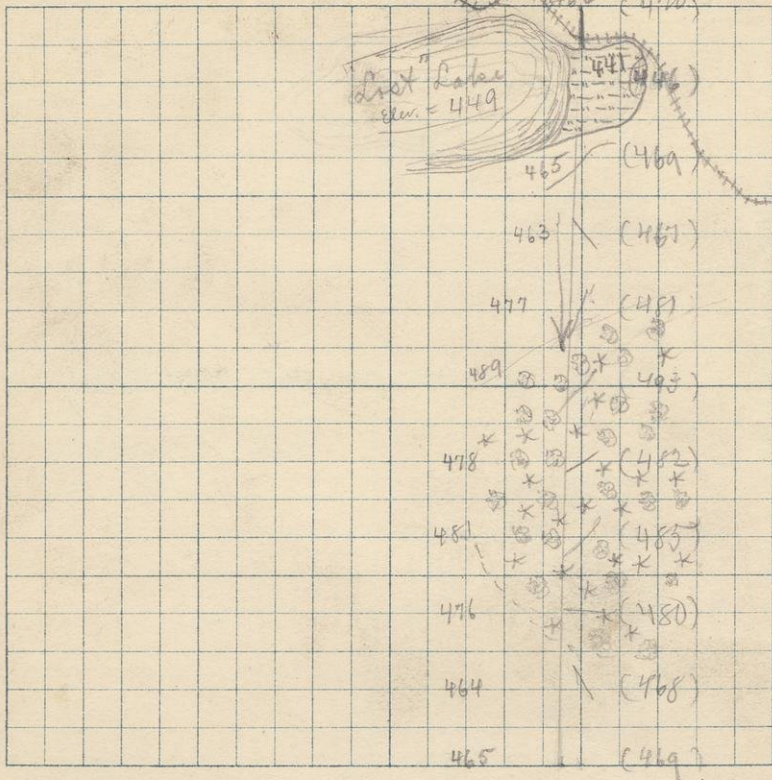 (470)
441 (446)
"Lost" Lake
Elev. = 449
465 (469)
463 (467)
477 (481)
489 493)
478 (482)
481 (485)
476 (480)
464 (468)
465 (469)